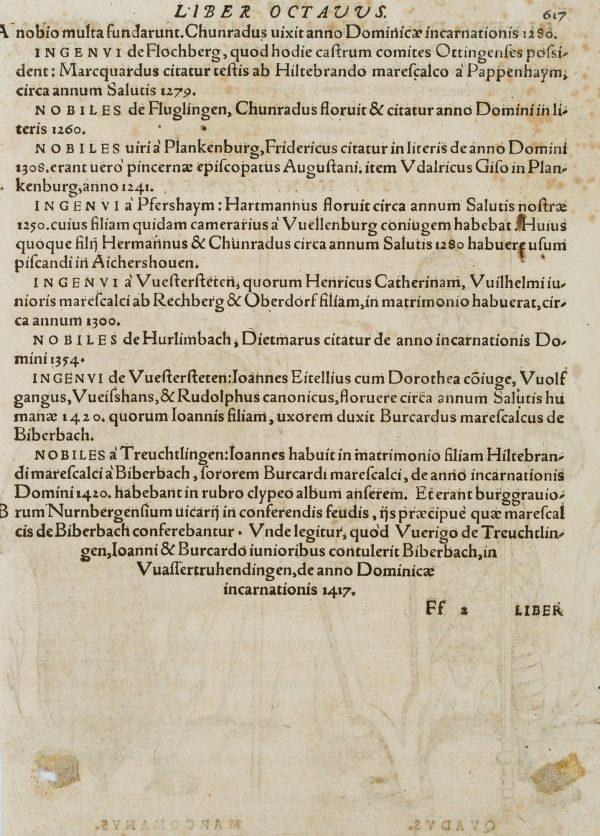 LIBER OCTAVVS. 617
A nobio multa fundarunt. Chunradus uixit anno Dominicæ incarnationis 1280.
INGENVI de Flochberg, quod hodie castrum comites Ottingenses possi-
dent: Marcquardus citatur testis ab Hiltebrando marescalco à Pappenhaym,
circa annum Salutis 1279.
NOBILES de Fluglingen, Chunradus floruit & citatur anno Domini in li-
teris 1260.
NOBILES uiri à Plankenburg, Fridericus citatur in literis de anno Domini
1308. erant uerò pincernæ episcopatus Augustani. item Vdalricus Giso in Plan-
kenburg, anno 1241.
INGENVI à Pfershaym: Hartmannus floruit circa annum Salutis nostræ
1250. cuius filiam quidam camerarius à Vuellenburg coniugem habebat. Huius
quoque filij Hermannus & Chunradus circa annum Salutis 1280 habuere usum
piscandi in Aichershouen.
INGENVI à Vuestersteten, quorum Henricus Catherinam, Vuilhelmi iu-
nioris marescalci ab Rechberg & Oberdorf filiam, in matrimonio habuerat, cir-
ca annum 1300.
NOBILES de Hurlimbach, Dietmarus citatur de anno incarnationis Do-
mini 1354.
INGENVI de Vuestersteten: Ioannes Eitellius cum Dorothea cõiuge, Vuolf
gangus, Vueisshans, & Rudolphus canonicus, floruere circa annum Salutis hu
manæ 1420. quorum Ioannis filiam, uxorem duxit Burcardus marescalcus de
Biberbach.
NOBILES à Treuchtlingen: Ioannes habuit in matrimonio filiam Hiltebran-
di marescalci à Biberbach, sororem Burcardi marescalci, de anno incarnationis
Domini 1420. habebant in rubro clypeo album anserem. Et erant burggrauio-
B rum Nurnbergensium uicarij in conferendis feudis, ijs præcipuè quæ marescal
cis de Biberbach conferebantur. Vnde legitur, quòd Vuerigo de Treuchtlin-
gen, Ioanni & Burcardo iunioribus contulerit Biberbach, in
Vuassertruhendingen, de anno Dominicæ
incarnationis 1417.
Ff 2 LIBER
MARCOMANVS. QVADVS.